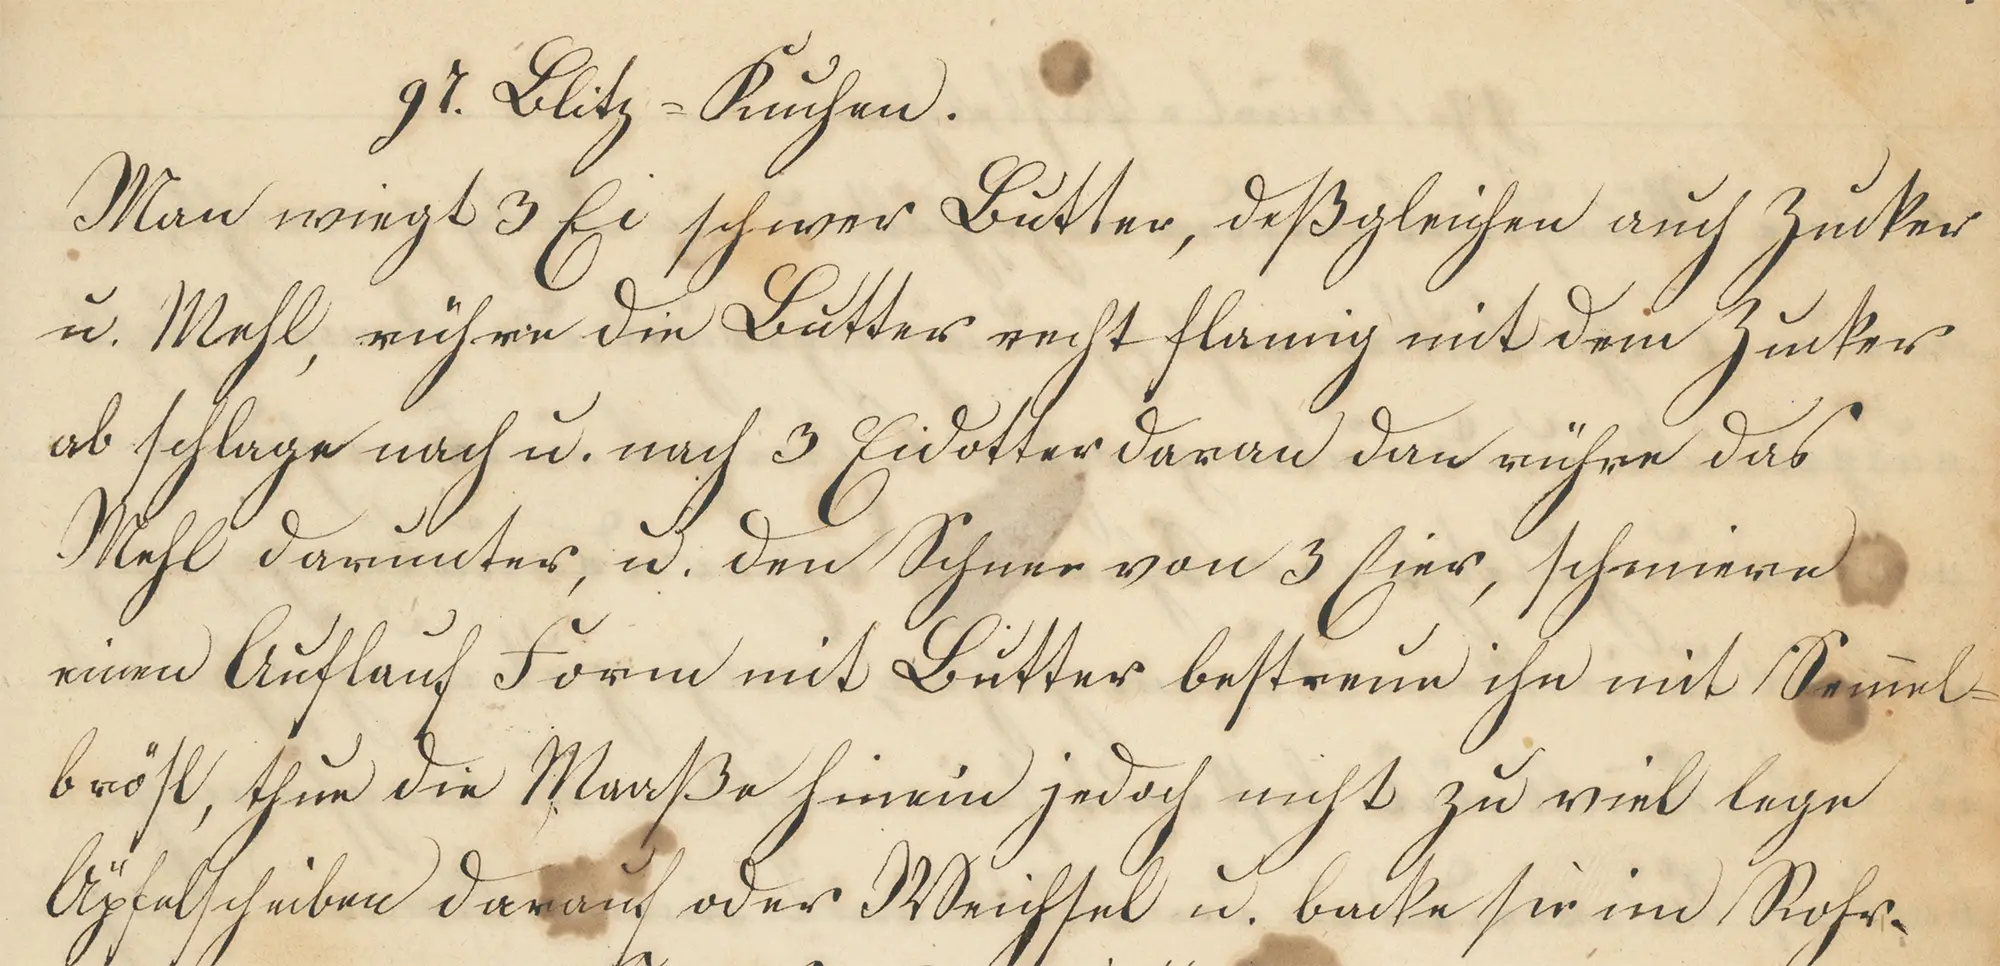 97. Blitz=Kuchen.
Man wiegt 3 Ei schwer Butter, deßgleichen auch Zucker
u. Mehl, rühre die Butter recht flamig mit dem Zucker
ab schlage nach u. nach 3 Eidotter daran dan rühre das
Mehl darunter, u. den Schnee von 3 Eier, schmiere
einen Auflauf Form mit Butter bestreue ihn mit Sem̅el=
brösl, thue die Maaße hinein jedoch nicht zu viel lege
Äpfelscheiben darauf oder Weichsel u. backe sie im Rohr.